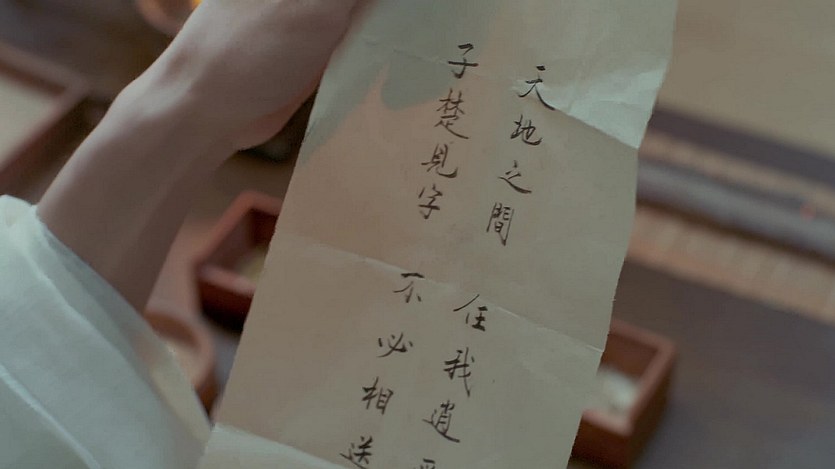 天地之間 任我逍
子楚見字 不必相送